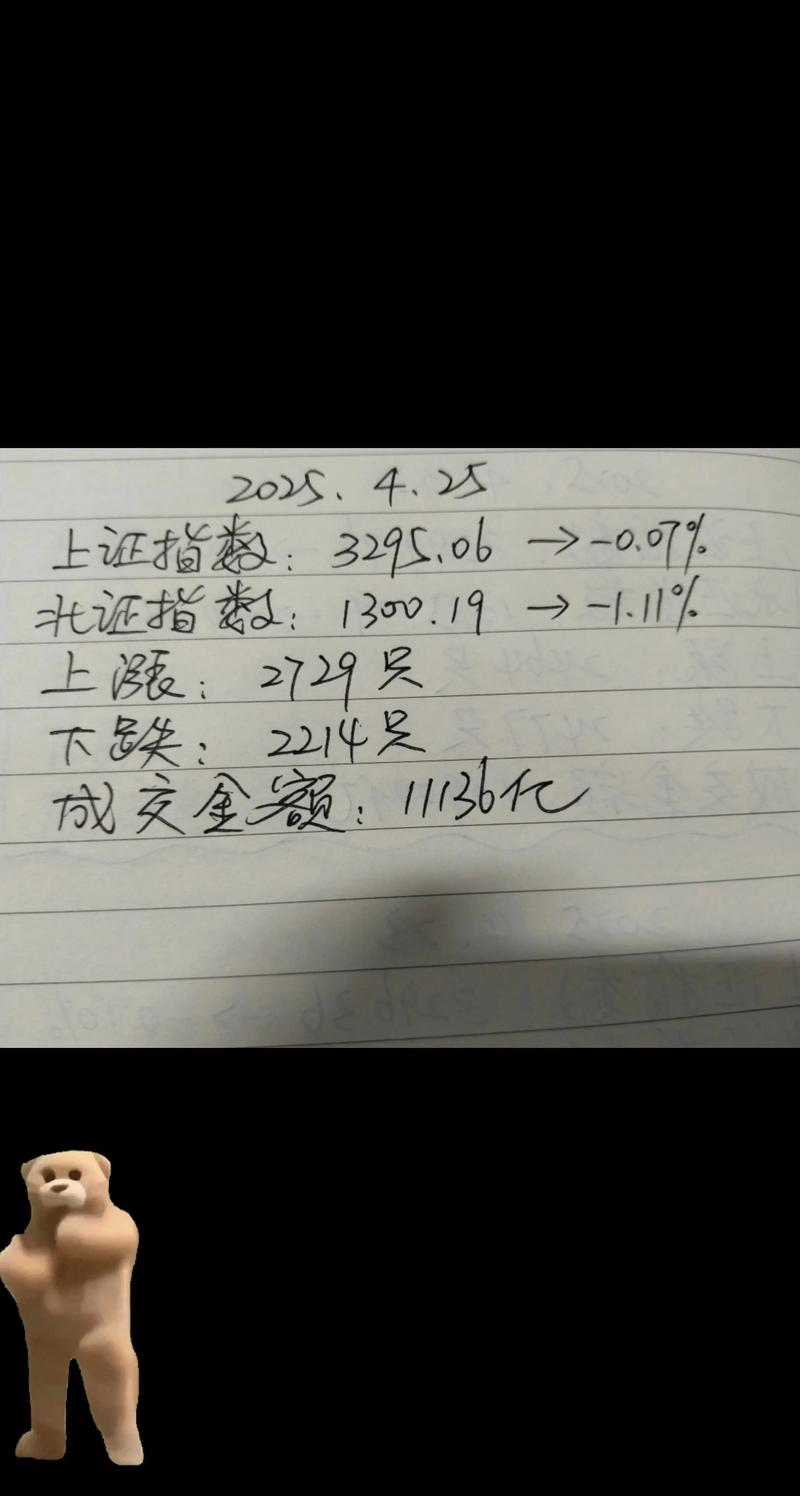 2025.4.25
上证指数：3295.06 →-0.07%
北证指数：1300.19 →-1.11%
上涨：2729只
下跌：2214只
成交金额：11136亿